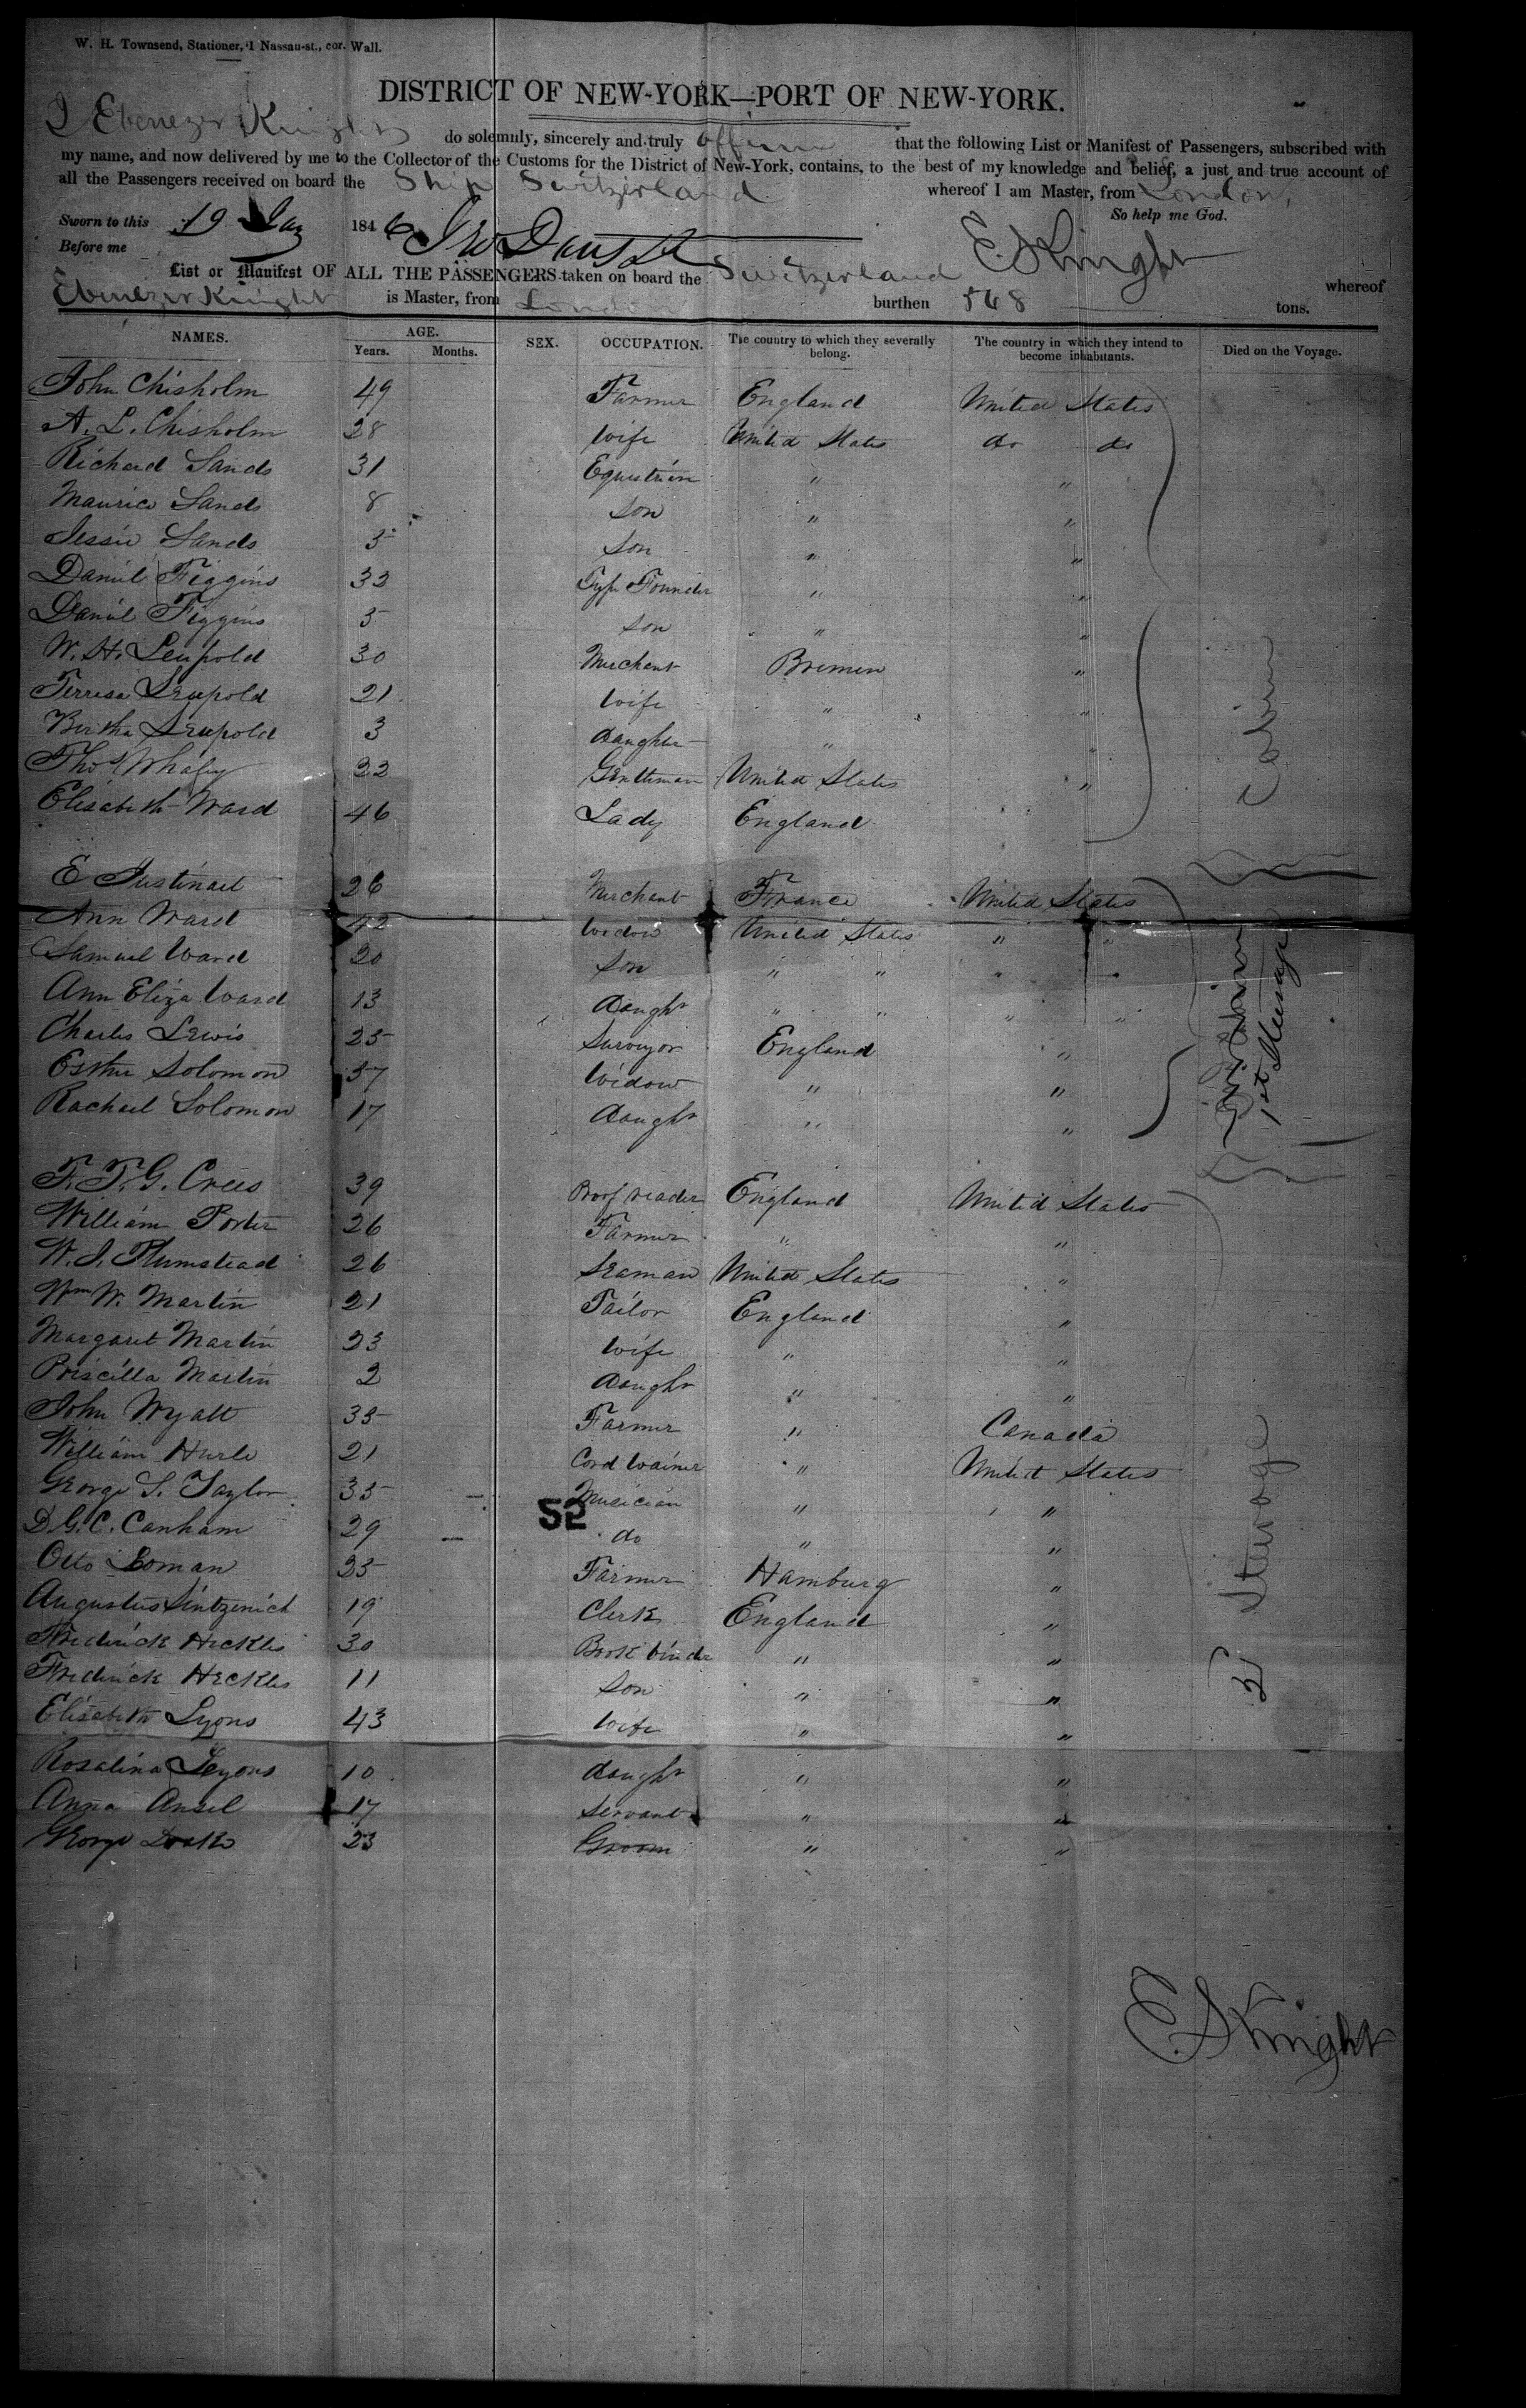 W. H. Townsend, Stationer, 1 Nassau-st., cor. Wall.
DISTRICT OF NEW-YORK—PORT OF NEW-YORK.
I Ebenezer Knight do solemnly, sincerely and truly affirm that the following List or Manifest of Passengers, subscribed with
my name, and now delivered by me to the Collector of the Customs for the District of New-York, contains, to the best of my knowledge and belief, a just and true account of
all the Passengers received on board the Ship Switzerland whereof I am Master, from London,
So help me God.
Sworn to this 19 Jan 1846
Before me
E Knight
List or Manifest OF ALL THE PASSENGERS taken on board the Switzerland whereof
Ebenezer Knight is Master, from London burthen 568 tons.
NAMES. AGE. Years. Months. SEX. OCCUPATION. The country to which they severally belong. The country in which they intend to become inhabitants. Died on the Voyage.
John Chisholm 49 Farmer England United States
A. L. Chisholm 28 Wife United States do do
Richard Sands 31 Equestrian " "
Maurice Sands 8 Son " "
Jessie Sands 5 Son " "
Daniel Figgins 33 Type Founder " "
Daniel Figgins 5 Son " "
W. H. Leupold 30 Merchant Bremen "
Terresa Leupold 21 Wife " "
Bertha Leupold 3 daughter " "
Thos Whaley 22 Gentleman United States "
Elisabeth Ward 46 Lady England
Cabin
E 26 Merchant France United States
Ann Ward 42 Widow United States " "
Samuel Ward 20 Son " " " "
Ann Eliza Ward 13 daught " " " "
Charles Lewis 25 Surveyor England "
Esther Solomon 37 Widow " "
Rachael Solomon 17 daught " "
1st Steerage
F. T. G. Crees 39 Proof reader England United States
William Porter 26 Farmer " "
W. J. Plumstead 26 Seaman United States "
Wm W. Martin 21 Tailor England "
Margaret Martin 23 Wife " "
Priscilla Martin 2 daught " "
John Wyatt 35 Farmer " Canada
William Hurle 21 Cord wainer " United States
George S. Taylor 35 Musician " "
52
D. G. C. Canham 29 do " "
Otto Loman 25 Farmer Hamburg "
Augustus Sintzenich 19 Clerk England "
Frederick Heckles 30 Book binder " "
Frederick Heckles 11 Son " "
Elisabeth Lyons 43 Wife " "
Rosalina Lyons 10 daught " "
Anna Ansel 17 Servant " "
George Drake 23 Groom " "
Steerage
E Knight